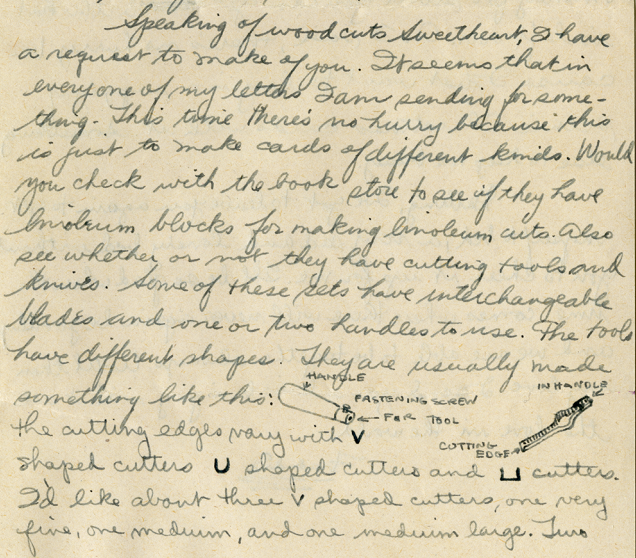 Speaking of woodcuts Sweetheart, I have
a request to make of you. It seems that in
everyone of my letters I am sending for some-
thing. This time there's no hurry because this
is just to make cards of different kinds. Would
you check with the book store to see if they have
linoleum blocks for making linoleum cuts. Also
see whether or not they have cutting tools and
knives. Some of these sets have interchangeable
blades and one or two handles to use. The tools
have different shapes. They are usually made
something like this:
HANDLE
FASTENING SCREW
FOR TOOL
IN HANDLE
CUTTING
EDGE
the cutting edges vary with V
shaped cutters U shaped cutters and ⊔ cutters.
I'd like about three V shaped cutters, one very
fine, one medium, and one medium large. Two